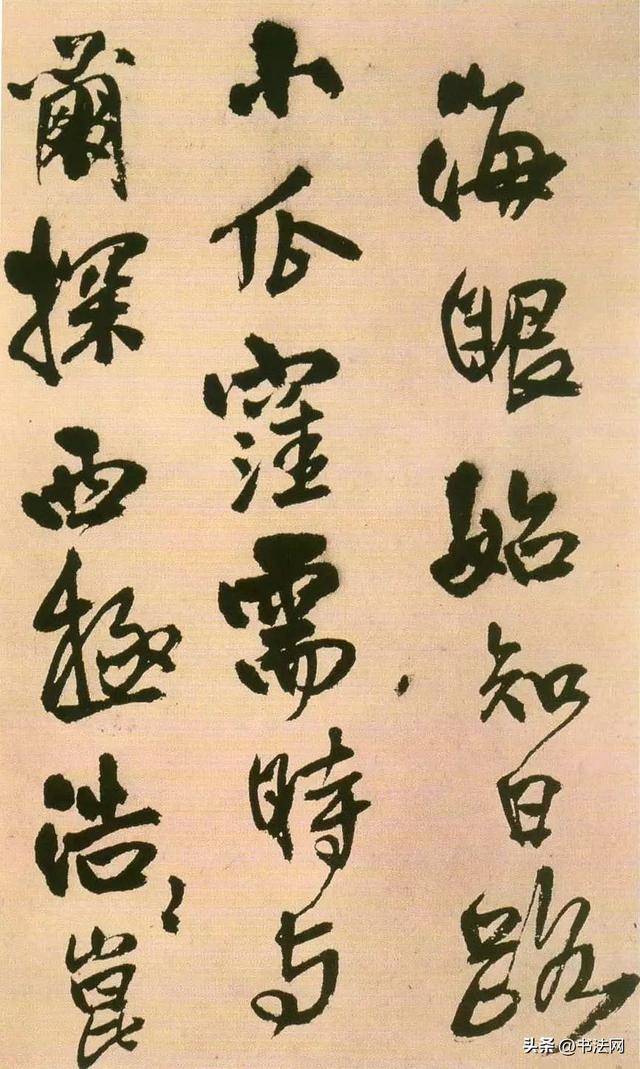 海眼始知日路
小瓜窪需時与
爾探西極浩〻崑
头条@书法网